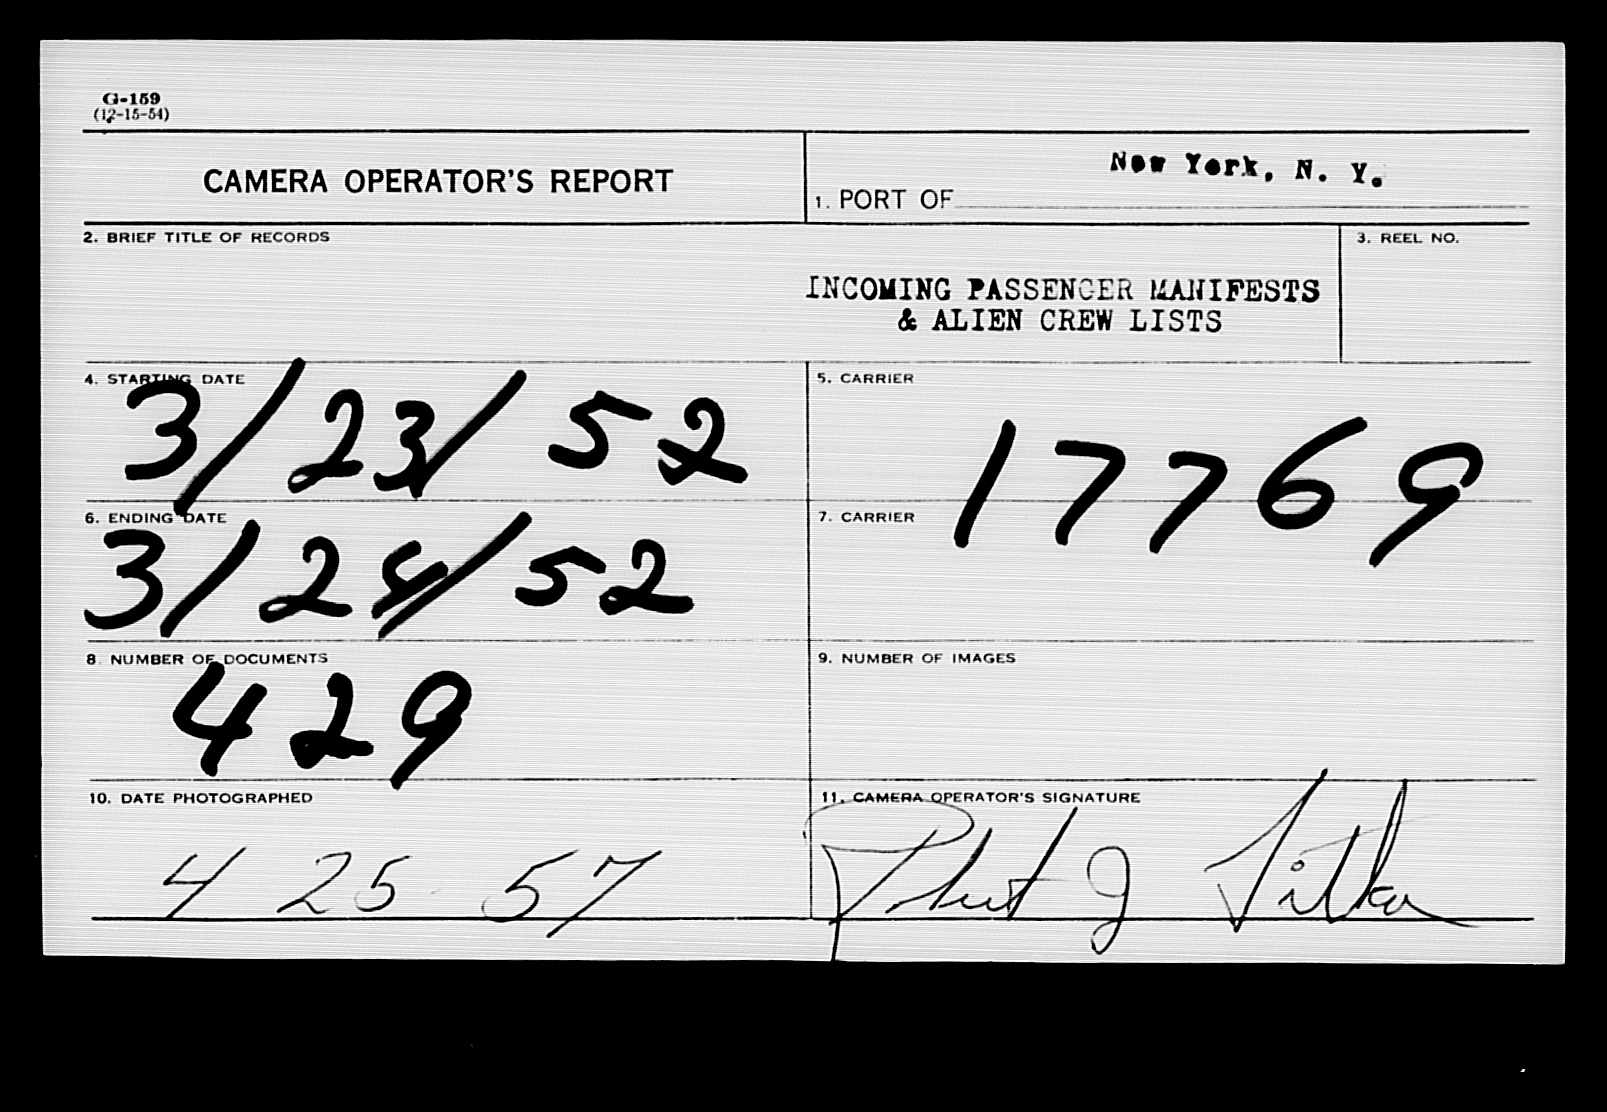 G-159
(12-15-54)
CAMERA OPERATOR'S REPORT
1. PORT OF New York, N. Y.
2. BRIEF TITLE OF RECORDS
3. REEL NO.
INCOMING PASSENGER MANIFESTS
& ALIEN CREW LISTS
4. STARTING DATE
3/23/52
5. CARRIER
17769
6. ENDING DATE
3/24/52
7. CARRIER
8. NUMBER OF DOCUMENTS
429
9. NUMBER OF IMAGES
10. DATE PHOTOGRAPHED
4 25 57
11. CAMERA OPERATOR'S SIGNATURE
Robert J